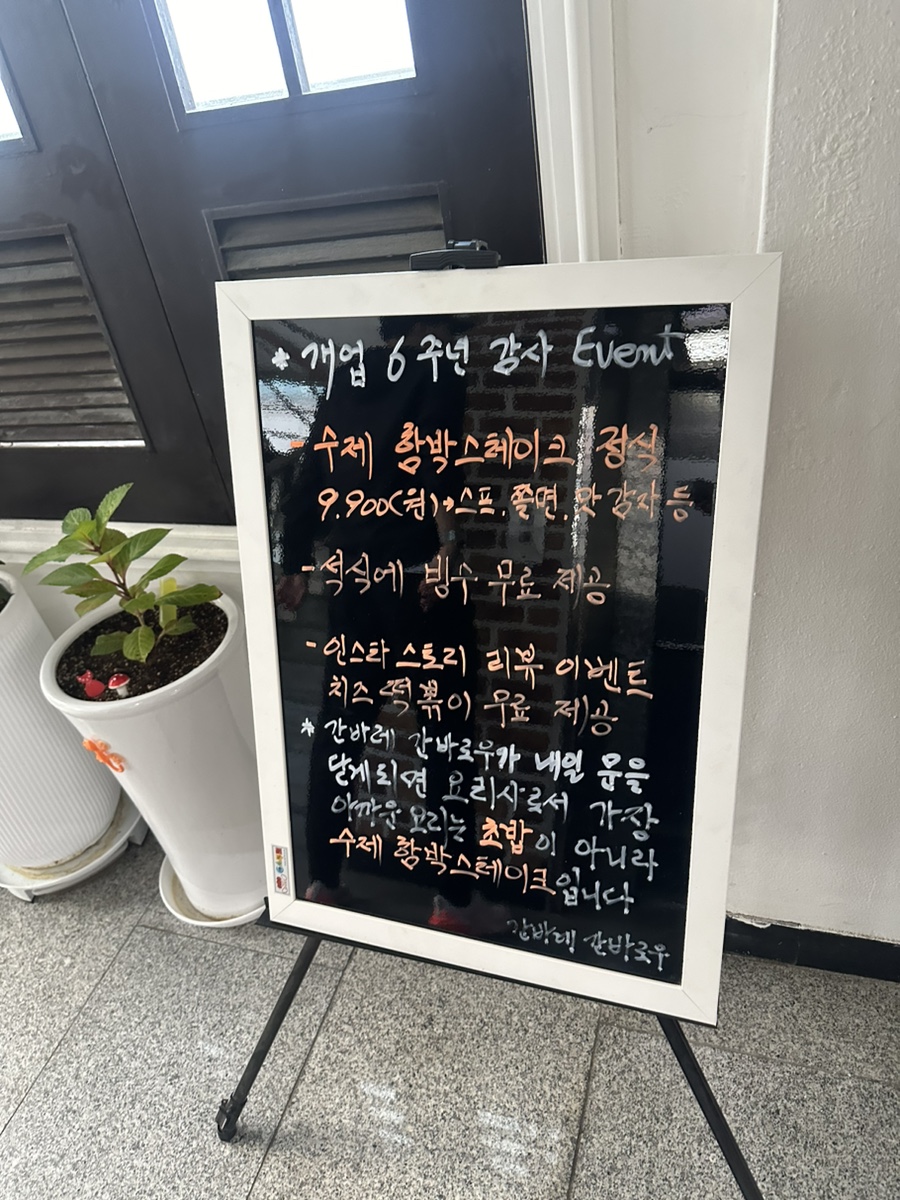 * 개업 6주년 감사 Event
- 수제 함박스테이크 정식
9.900(원)→스프.쫄면.맛감자 등
- 석식에 빙수 무료 제공
- 인스타 스토리 리뷰 이벤트
치즈 떡볶이 무료 제공
* 간바레 간바로우가 내일 문을
닫게되면 요리사로서 가장
아까운 요리는 초밥이 아니라
수제 함박스테이크입니다
간바레 간바로우